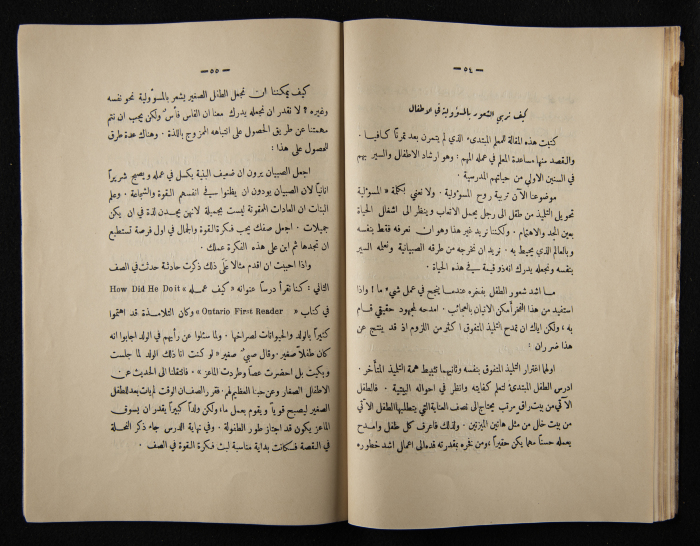 — ٥٤ —
كيف نربي الشعور بالمسؤولية في الاطفال
كتبت هذه المقالة للمعلم المبتدىء الذي لم يتمرن بعد تمرنًا كافيا .
والقصد منها مساعدة المعلم في عمله المهم : وهو ارشاد الاطفال والسير بهم
في السنين الاولى من حياتهم المدرسية .
موضوعنا الآن تربية روح المسؤولية . ولا نعني بكلمة « المسؤلية
تحويل التلميذ من طفل الى رجل يحمل الاتعاب وينظر الى اشغال الحياة
بعين الجد والاهتمام . ولكننا نريد غير هذا وهو ان نعرفه فقط بنفسه
وبالعالم الذي يحيط به . نريد ان نخرجه من طرقه الصبيانية ونعلمه السير
بنفسه ونجعله يدرك انه ذو قيمة في هذه الحياة .
ما اشد شعور الطفل بفخره عندما ينجح في عمل شيء ما ! واذا
استفيد من هذا الفخر أمكن الاتيان بالعجائب . امدحه لمجهود حقيقي قام
به ، ولكن اياك ان تمدح التلميذ المتفوق اكثر من اللزوم اذ قد ينتج عن
هذا ضرران :
اولهما اغترار التلميذ المتفوق بنفسه وثانيهما تثبيط همة التلميذ المتأخر .
ادرس الطفل المبتدىء لتعلم كفايته وانظر في احواله البيتية . فالطفل
الآتي من بيت راق مرتب يحتاج الى نصف العناية التي يتطلبها الطفل الآتي
من بيت خال من مثل هاتين الميزتين . ولذلك فاعرف كل طفل وامدح
بعمله حسنًا مهما يكن حقيراً ، ومن فخره بمقدرته قده الى اعمال اشد خطوره
— ٥٥ —
كيف يمكننا ان نجعل الطفل الصغير يشعر بالمسؤولية نحو نفسه
وغيره ؟ لا نقدر ان نجعله يدرك معنا ان الفاس فأس ولكن يجب ان نتم
مهمتنا عن طريق الحصول على انتباهه الممزوج باللذة . وهناك عدة طرق
للحصول على هذا :
اجعل الصبيان يرون ان ضعيف البنية يكسل في عمله ويصبح شريراً
انانياً لان الصبيان يودون ان يظنوا في انفسهم القوة والشجاعة . وعلم
البنات ان العادات الممقوتة ليست بجميلة لانهن يجدن لذة في ان يكن
جميلات . اجعل صفك يحب فكرة القوة والجمال في اول فرصة تستطيع
ان تجدها ثم ابن على هذه الفكرة عملك .
واذا احببت ان اقدم مثالاً على ذلك ذكرت حادثة حدثت في الصف
التالي : كنا نقرأ درسا عنوانه « كيف عمله » How Did He Do it
في كتاب « Ontario First Reader » وكان التلامذة قد اهتموا
كثيراً بالولد والحيوانات لصراخها . ولما سئلوا عن رأيهم في الولد اجابوا انه
كان طفلاً صغير . وقال صبي صغير « لو كنت انا ذلك الولد لما جلست
وبكيت بل احضرت عصاً وطردت الماعز » . فانتقلنا الى الحديث عن
الاطفال الصغار وعن حبنا العظيم لهم . فقرر الصف ان الوقت لم يات بعد للطفل
الصغير ليصبح قوياً ويقوم بعمل ما ، ولكن ولداً كبيراً يقدر ان يسوق
الماعز يكون قد اجتاز طور الطفولة . وفي نهاية الدرس جاء ذكر النحلة
في القصة فكانت بداية مناسبة لبث فكرة القوة في الصف .